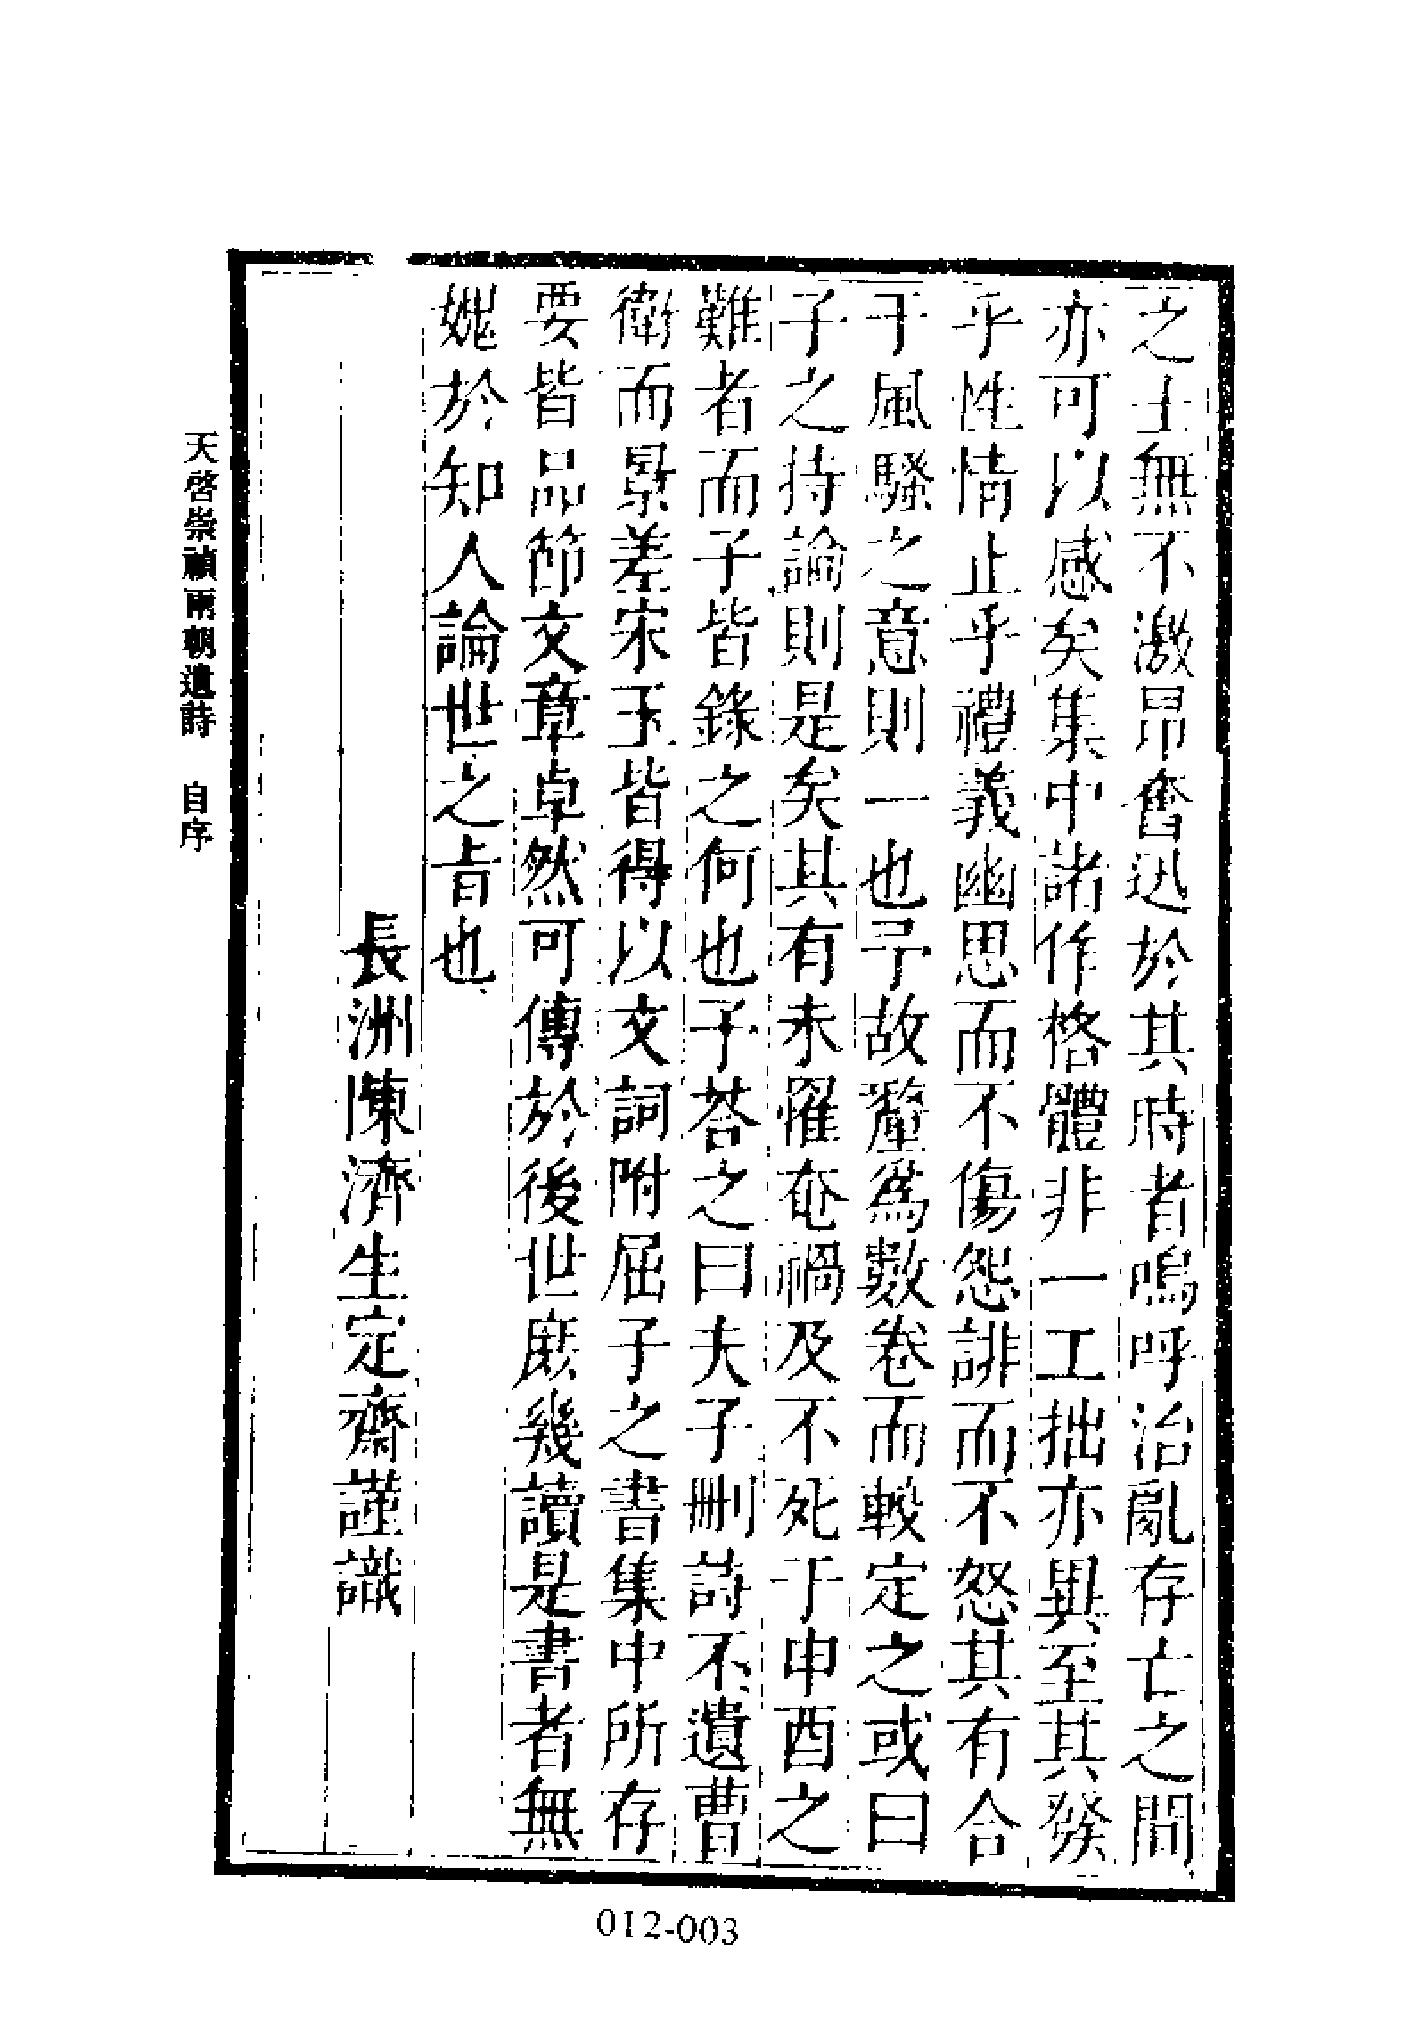 之士無不激昂奮迅於其時者嗚呼治亂存亡之間
亦可以感矣集中諸作格體非一工拙亦異至其發
乎性情止乎禮義幽思而不傷怨誹而不怒其有合
于風騷之意則一也予故釐爲數卷而較定之或曰
子之持論則是矣其有未罹奄禍及不死于申酉之
難者而子皆錄之何也予荅之曰夫子刪詩不遺曹
衛而景差宋玉皆得以文詞附屈子之書集中所存
要皆品節文章卓然可傳於後世庶幾讀是書者無
媿於知人論世之旨也
長洲陳濟生定齋謹識
天啓崇禎兩朝遺詩 自序
012-003